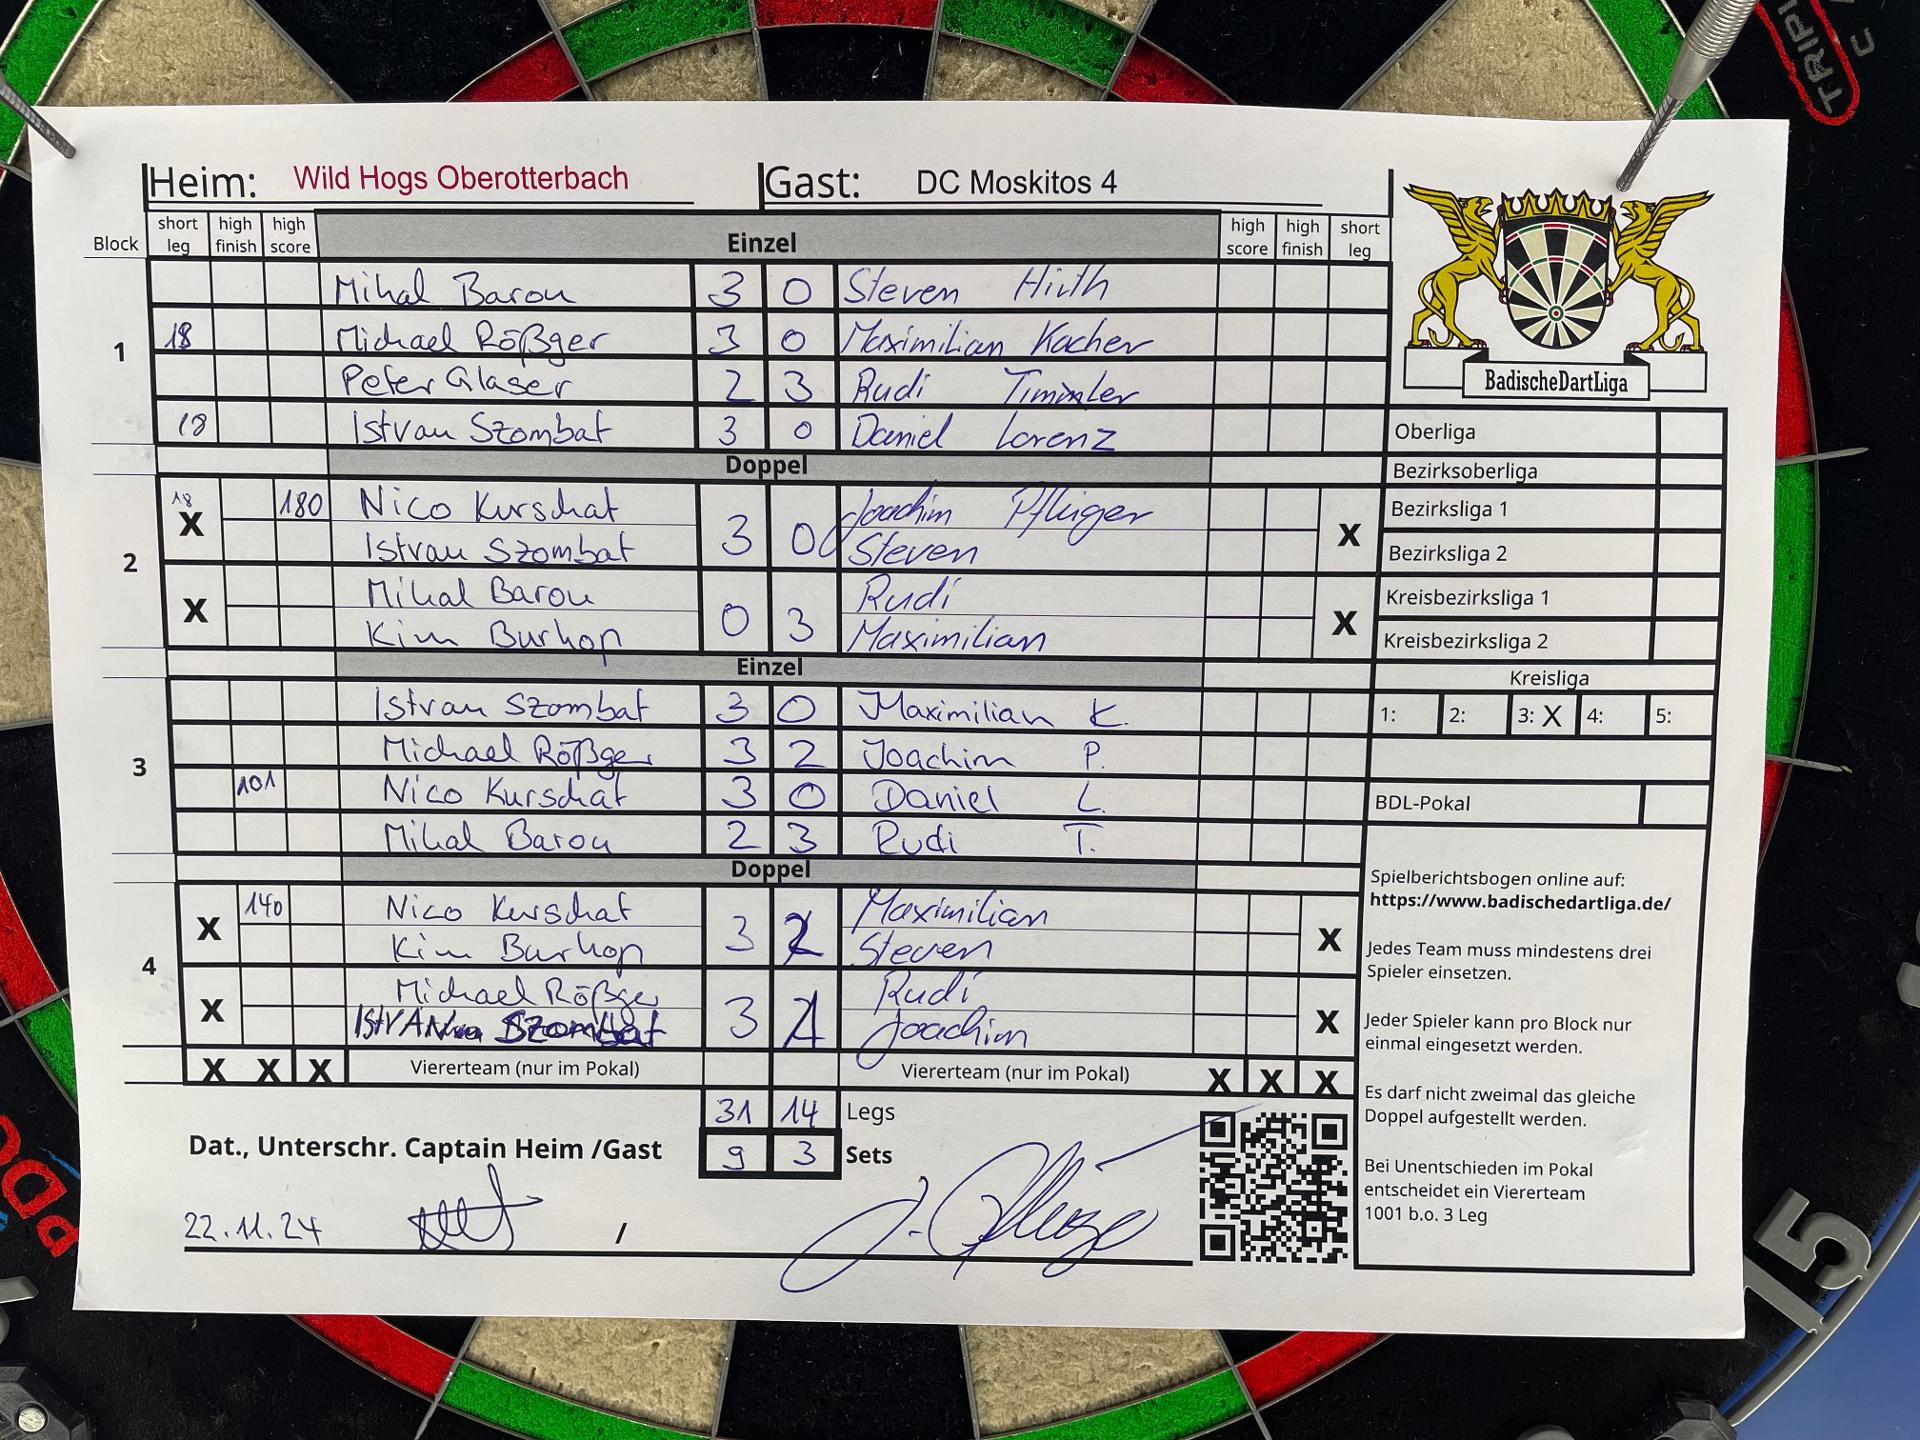 TRIPL
Heim: Wild Hogs Oberotterbach Gast: DC Moskitos 4
Block short leg high finish high score Einzel high score high finish short leg
1
Mihal Barou 3 0 Steven Hirth
18 Michael Rößger 3 0 Maximilian Kacher
Peter Glaser 2 3 Rudi Timmler
18 Istvan Szombat 3 0 Daniel Lorenz
Doppel
2
18 X 180 Nico Kurschat 3 0 Joachim Pflüger X
Istvan Szombat Steven
X Mihal Barou 0 3 Rudi X
Kim Burhop Maximilian
Einzel
3
Istvan Szombat 3 0 Maximilian K.
Michael Rößger 3 2 Joachim P.
101 Nico Kurschat 3 0 Daniel L.
Mihal Barou 2 3 Rudi T.
Doppel
4
X 140 Nico Kurschat 3 2 Maximilian X
Kim Burhop Steven
X Michael Rößger 3 1 Rudi X
Szombat Joachim
X X X Viererteam (nur im Pokal) Viererteam (nur im Pokal) X X X
31 14 Legs
9 3 Sets
Dat., Unterschr. Captain Heim /Gast
22.11.24 /
BadischeDartLiga
Oberliga
Bezirksoberliga
Bezirksliga 1
Bezirksliga 2
Kreisbezirksliga 1
Kreisbezirksliga 2
Kreisliga
1: 2: 3: X 4: 5:
BDL-Pokal
Spielberichtsbogen online auf:
https://www.badischedartliga.de/
Jedes Team muss mindestens drei
Spieler einsetzen.
Jeder Spieler kann pro Block nur
einmal eingesetzt werden.
Es darf nicht zweimal das gleiche
Doppel aufgestellt werden.
Bei Unentschieden im Pokal
entscheidet ein Viererteam
1001 b.o. 3 Leg
15